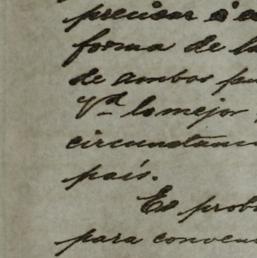 precisar
forma de la
de ambos pu
Vd lo mejor
circunstanc
país.
Es prob
para conven